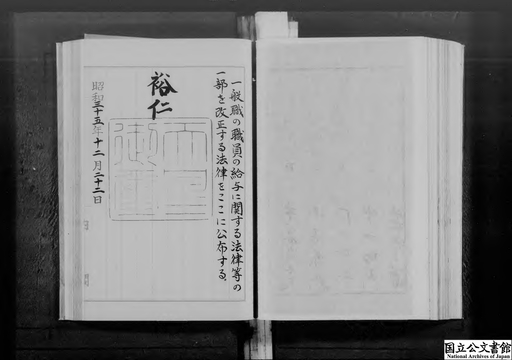 一般職の職員の給与に関する法律等の
一部を改正する法律をここに公布する。
裕仁
昭和三十五年十二月二十二日
国立公文書館
National Archives of Japan